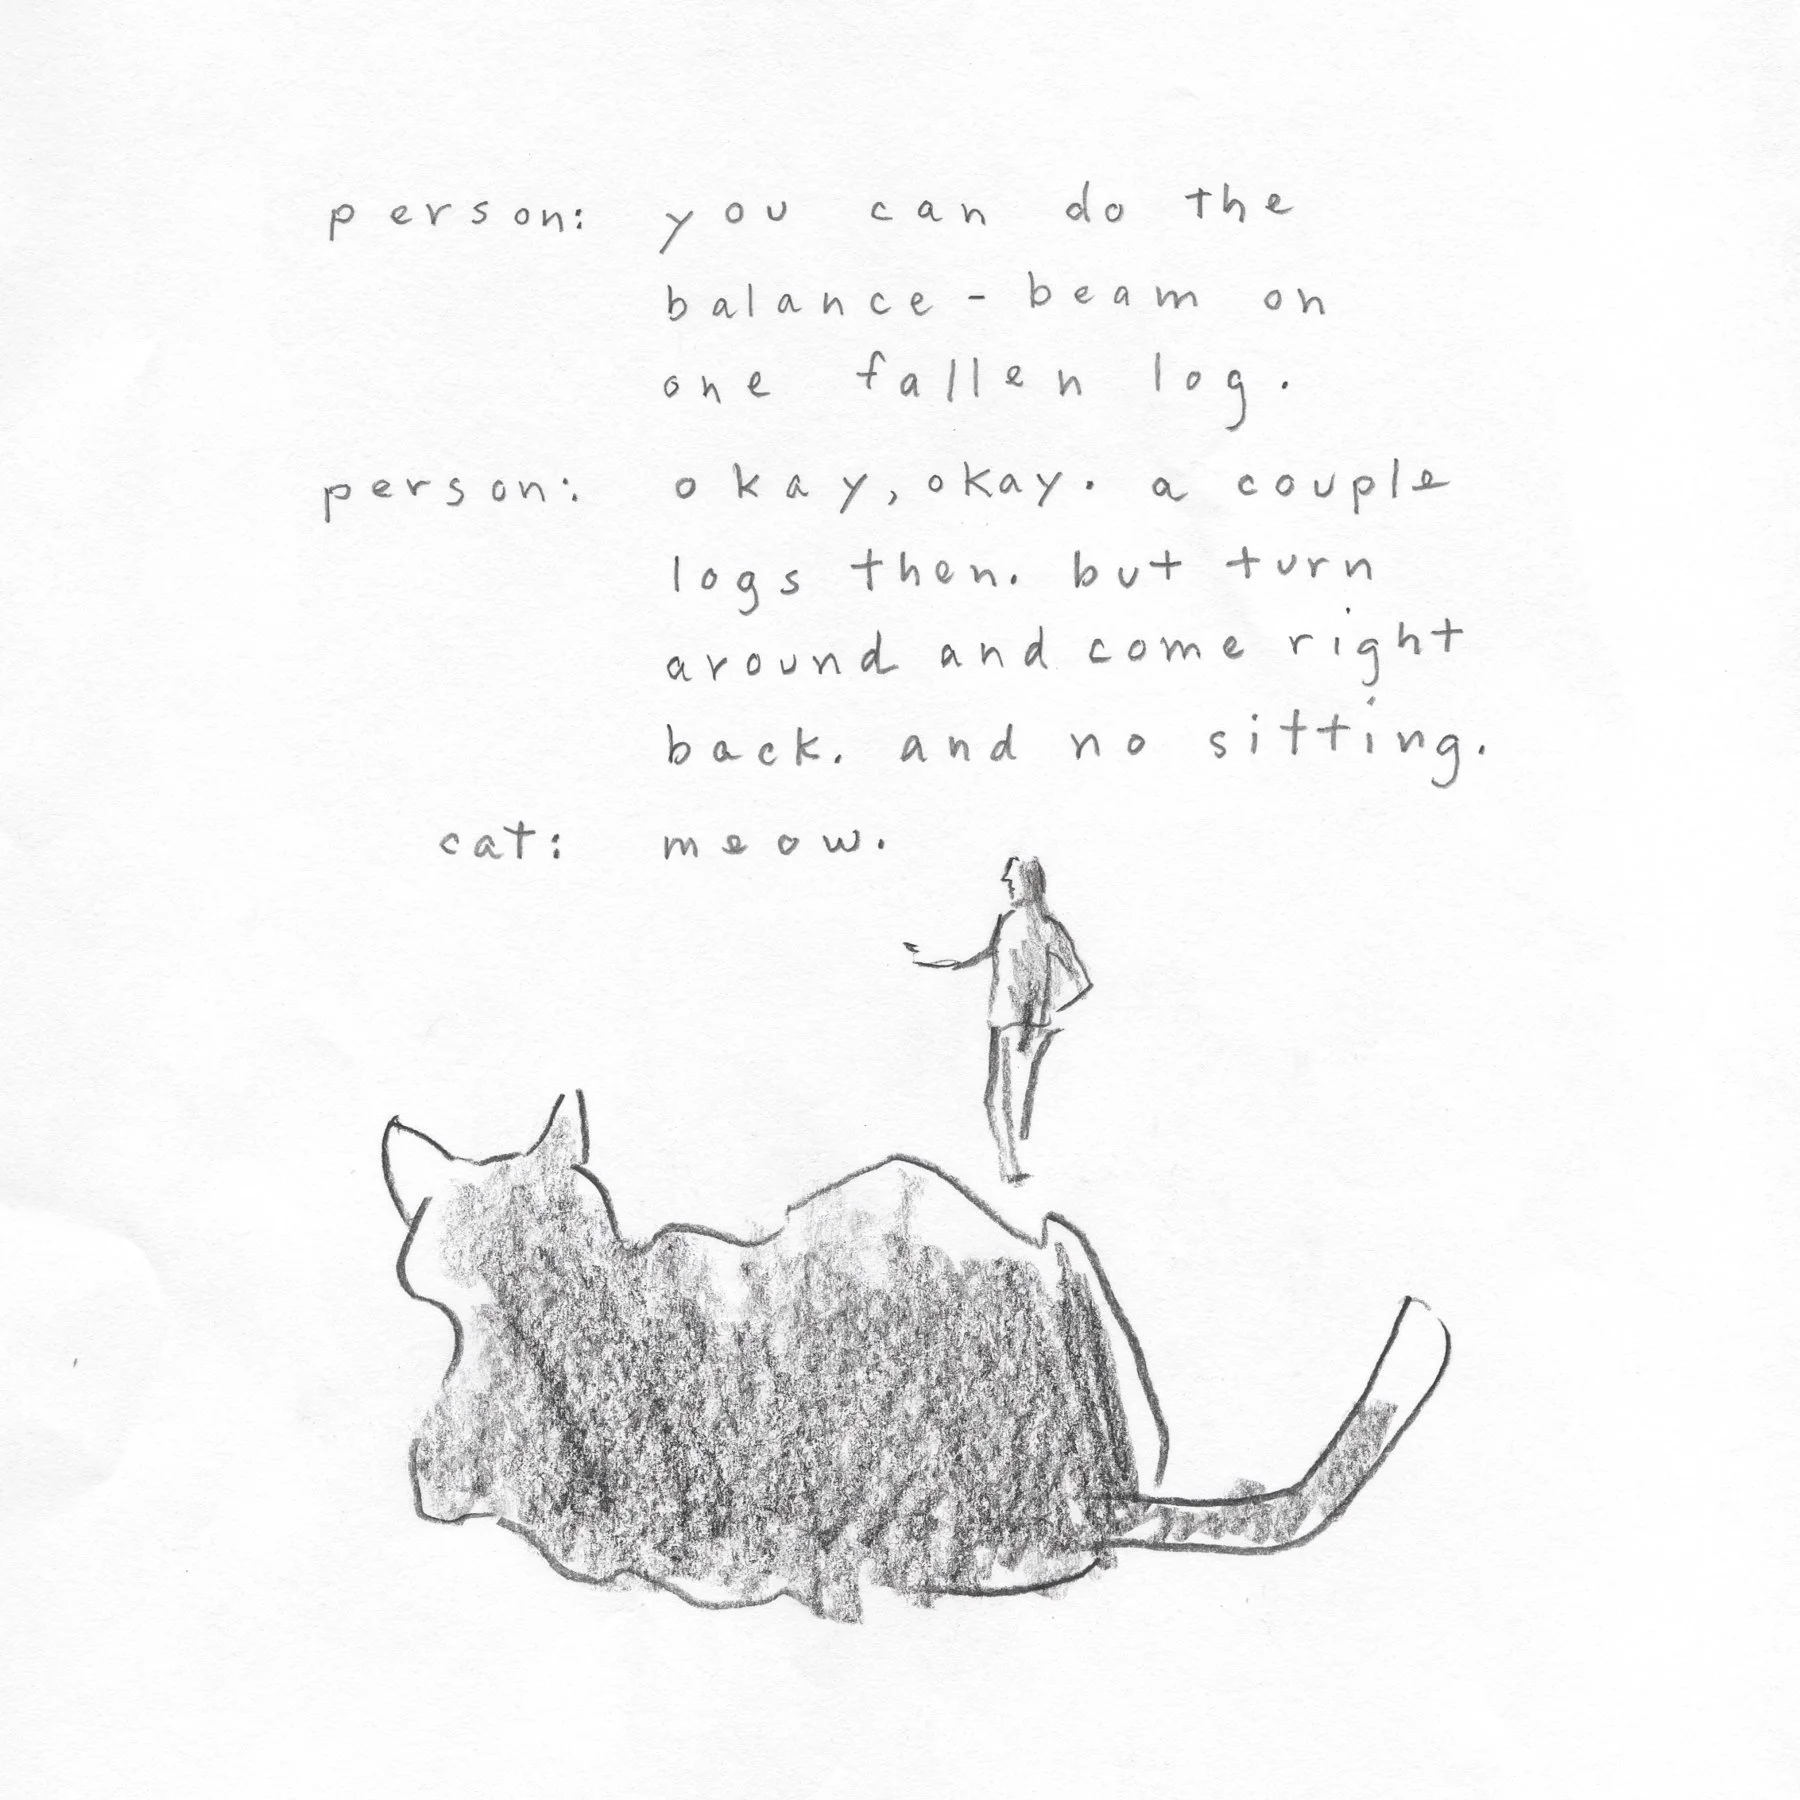 person: you can do the
balance-beam on
one fallen log.
person: okay, okay. a couple
logs then. but turn
around and come right
back. and no sitting.
cat: meow.